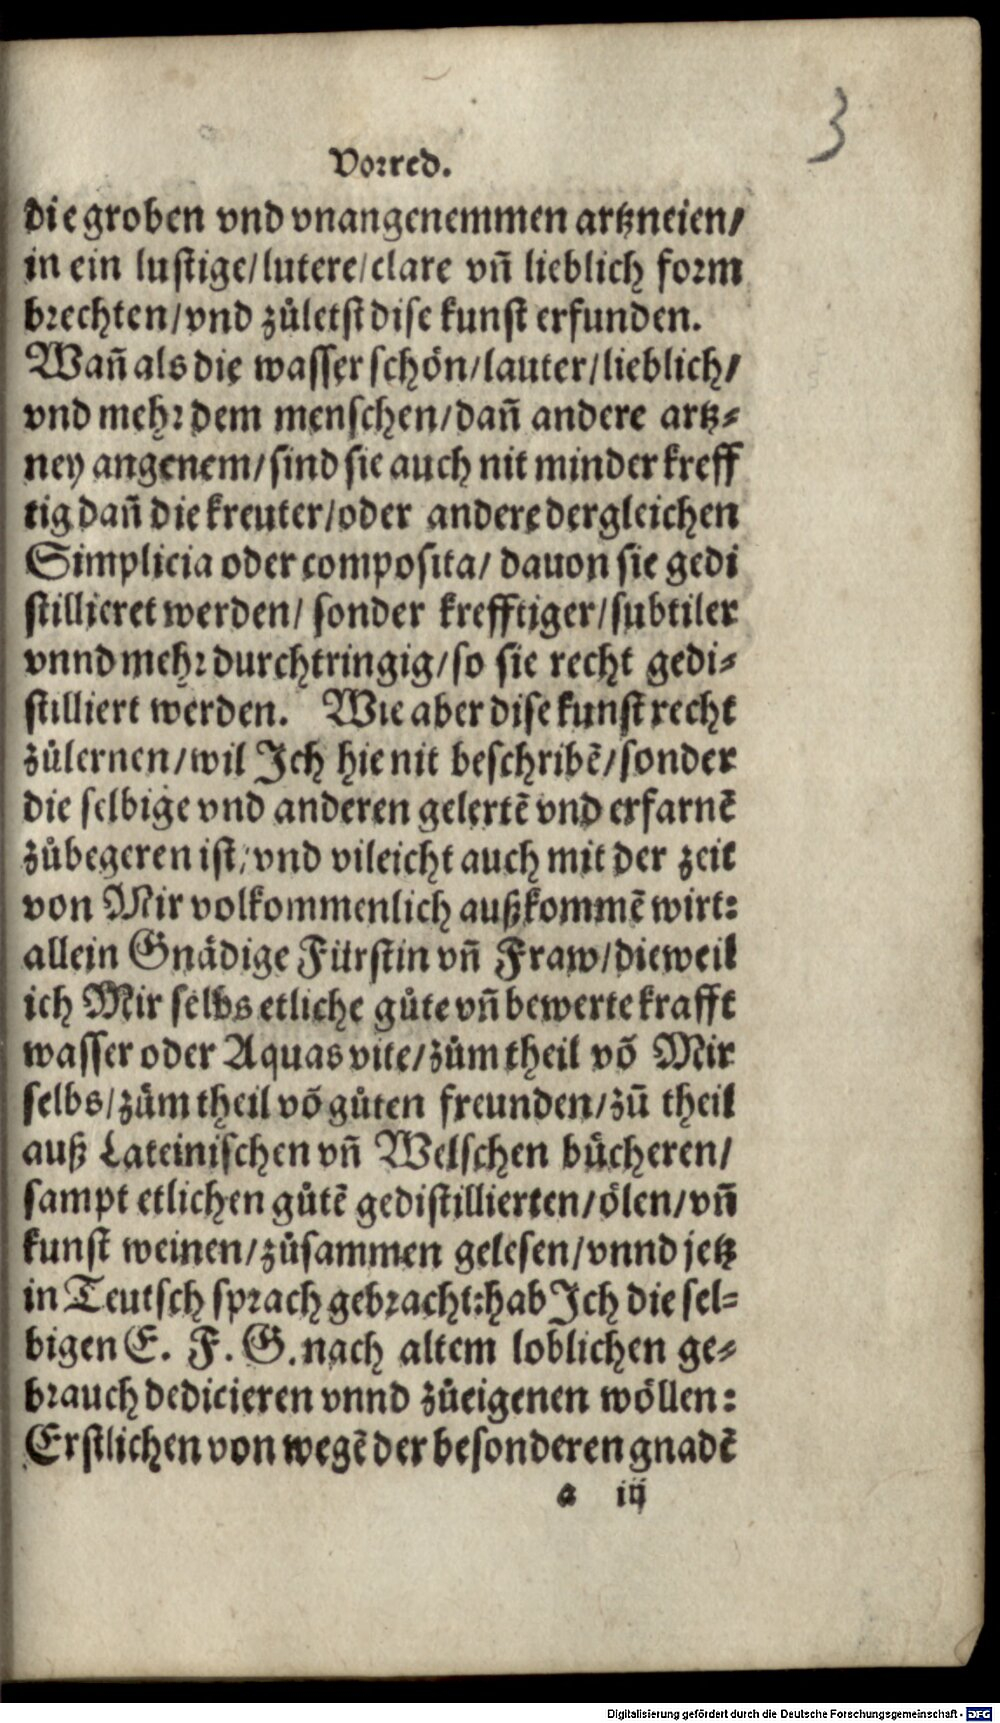 3
Vorred.
die groben vnd vnangenemmen artzneien/
in ein lustige/lutere/clare vñ lieblich form
brechten/vnd zůletst dise kunst erfunden.
Wañ als die wasser schön/lauter/lieblich/
vnd mehr dem menschen/dañ andere artz-
ney angenem/sind sie auch nit minder kreff
tig dañ die kreuter/oder andere dergleichen
Simplicia oder composita/ dauon sie gedi
stillieret werden/ sonder krefftiger/subtiler
vnnd mehr durchtringig/so sie recht gedi-
stilliert werden. Wie aber dise kunst recht
zůlernen/wil Jch hie nit beschribẽ/sonder
die selbige vnd anderen gelertẽ vnd erfarnẽ
zůbegeren ist/vnd vileicht auch mit der zeit
von Mir volkommenlich außkommẽ wirt:
allein Gnädige Fürstin vñ Fraw/dieweil
ich Mir selbs etliche gůte vñ bewerte krafft
wasser oder Aquas vite/zům theil võ Mir
selbs/zům theil võ gůten freunden/zů theil
auß Lateinischen vñ Welschen bücheren/
sampt etlichen gůtẽ gedistillierten/ölen/vñ
kunst weinen/zůsammen gelesen/vnnd jetz
in Teutsch sprach gebracht:hab Jch die sel-
bigen E. F. G. nach altem loblichen ge-
brauch dedicieren vnnd zůeigenen wöllen:
Erstlichen von wegẽ der besonderen gnadẽ
a iij
Digitalisierung gefördert durch die Deutsche Forschungsgemeinschaft - DFG